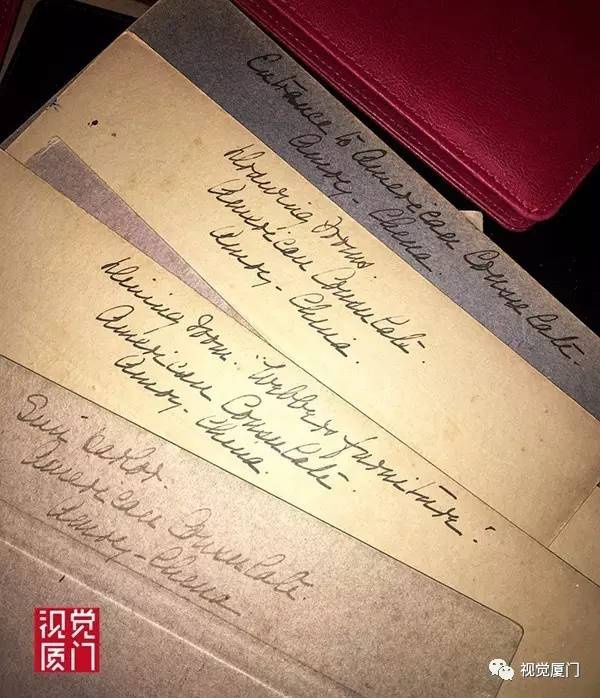 Entrance to American Consulate.
Amoy - China.
Drawing Room.
American Consulate.
Amoy - China.
Dining Room. furniture.
American Consulate.
Amoy - China.
Sun Parlor.
American Consulate.
Amoy - China
视觉
厦门
视觉厦门